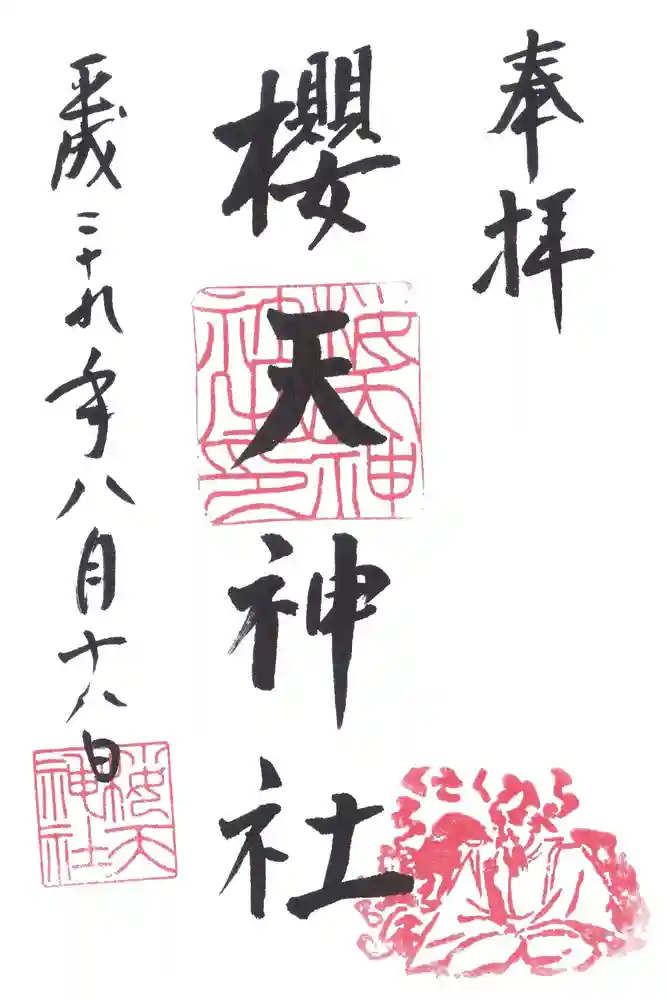 奉拝
櫻天神社
桜天神
社之印
平成二十九年八月十八日
桜天
神社